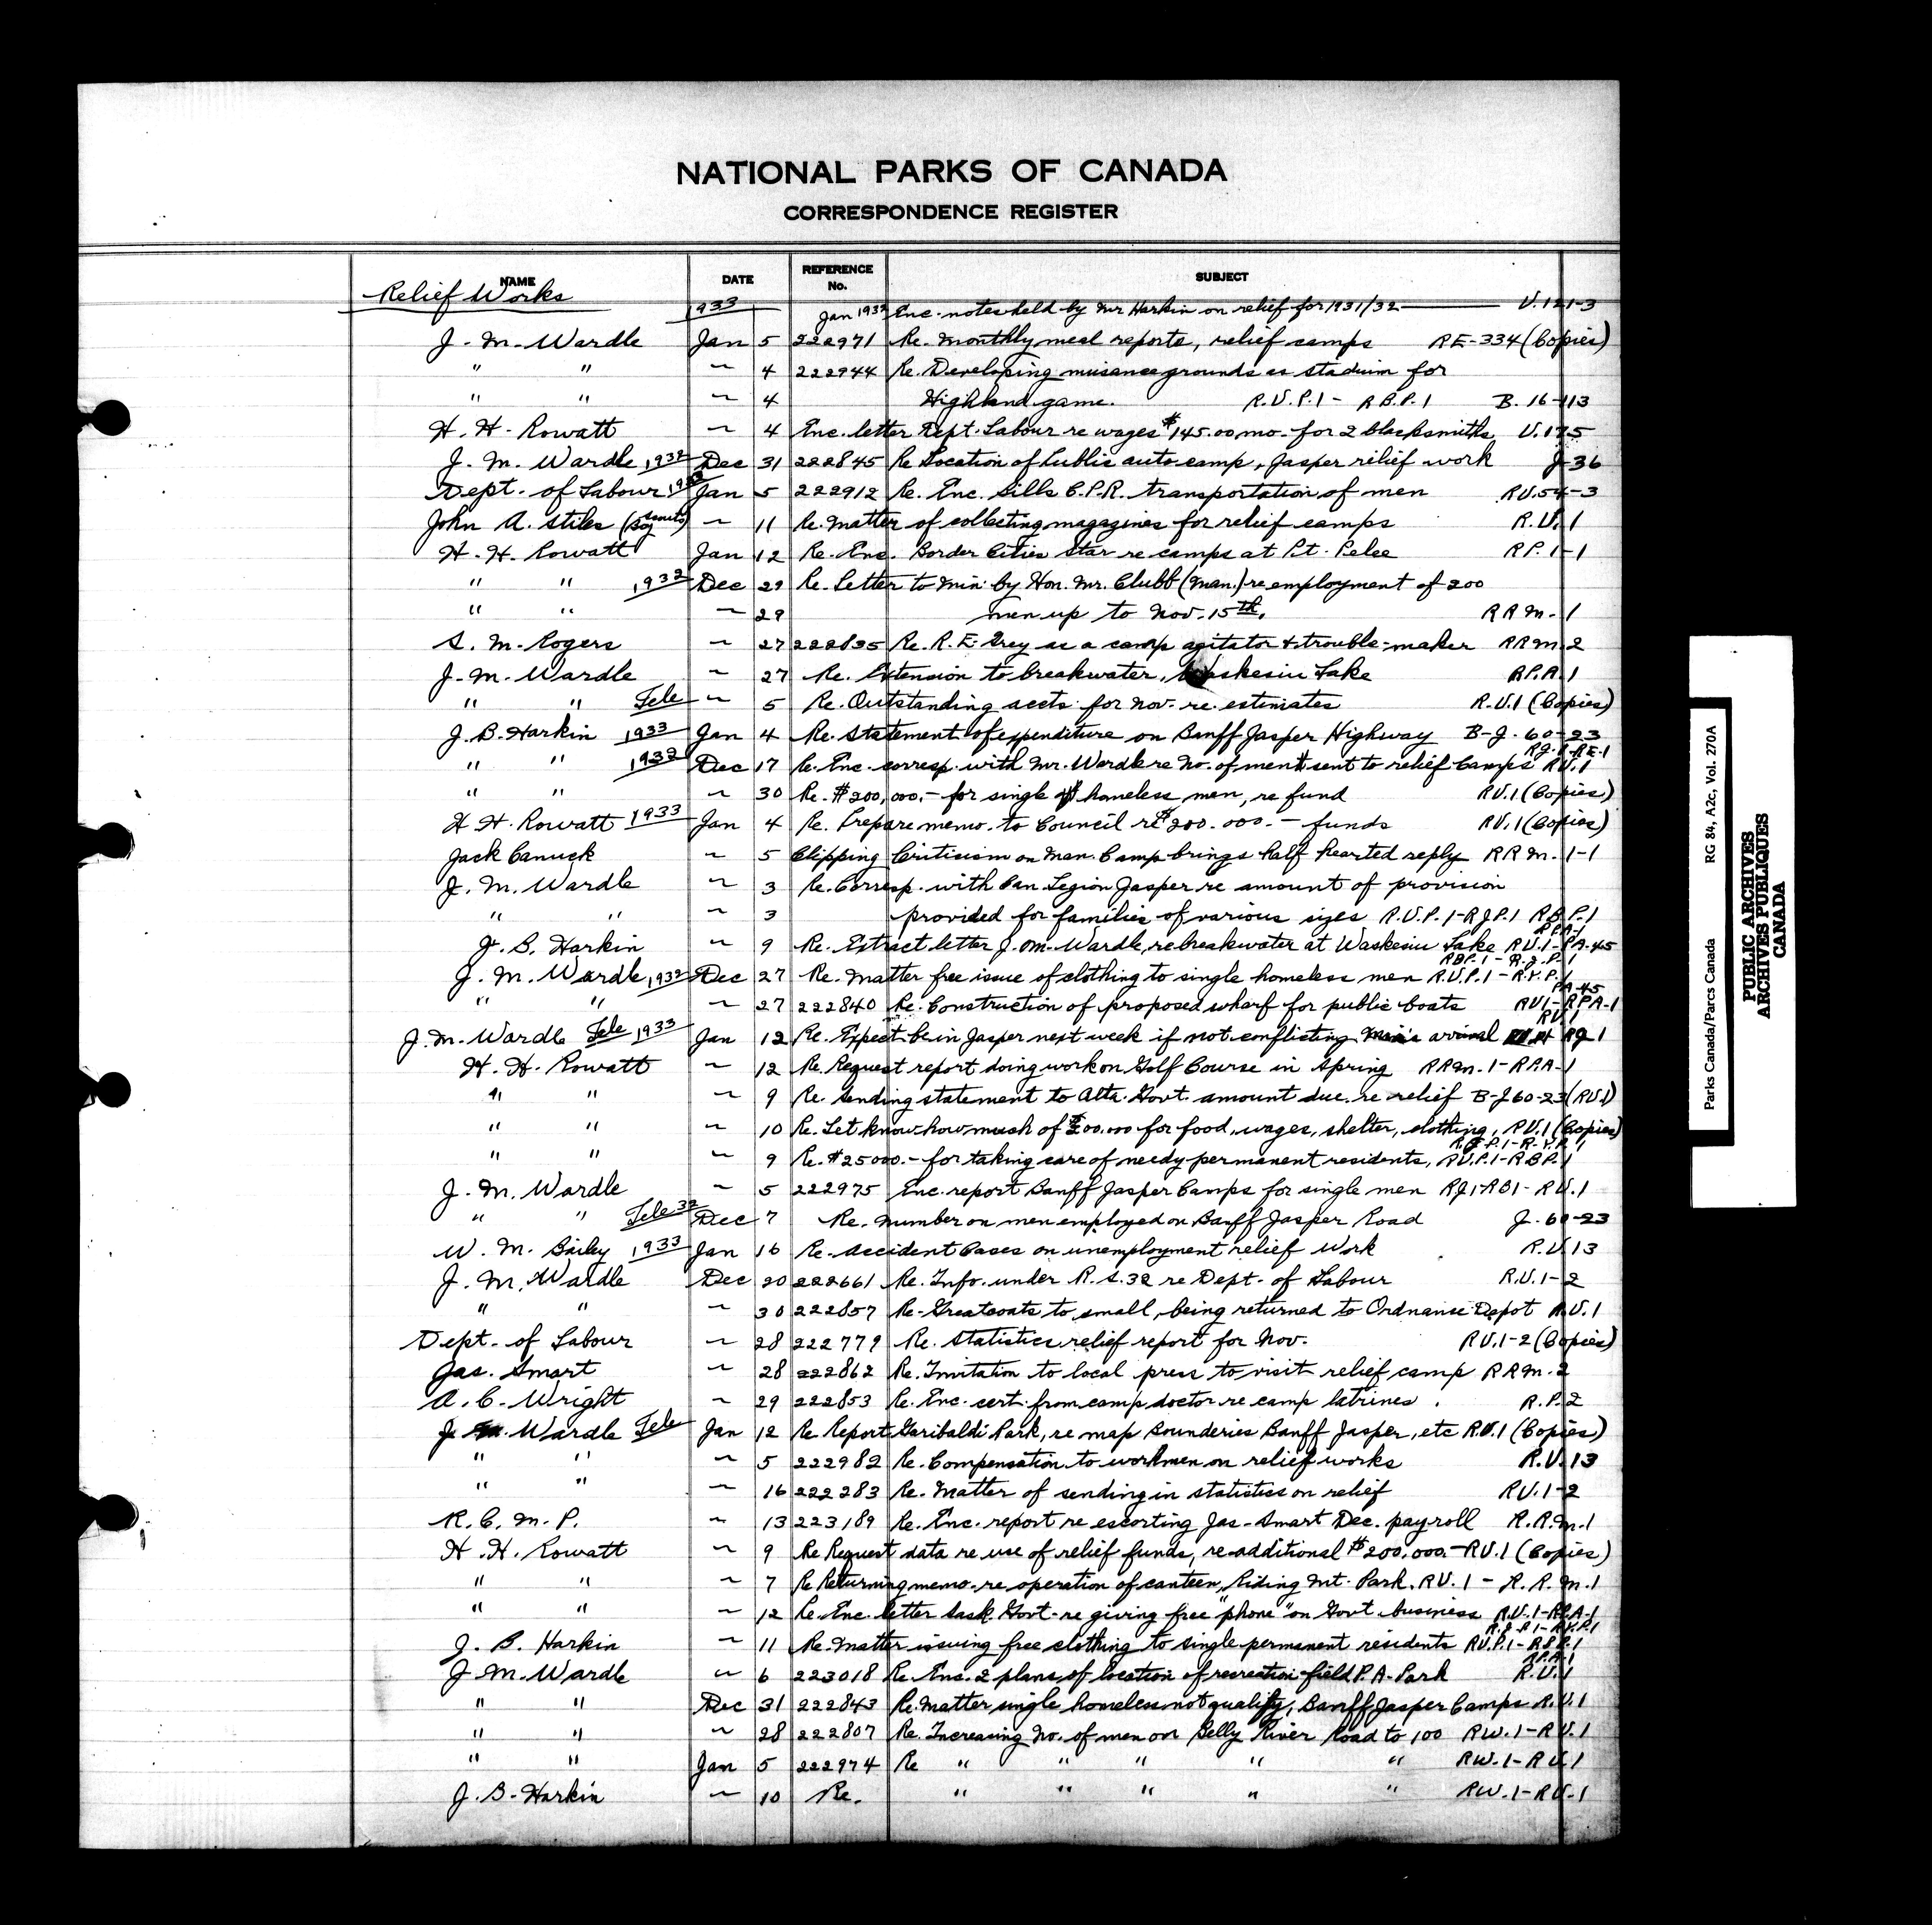 NATIONAL PARKS OF CANADA
CORRESPONDENCE REGISTER
NAME DATE REFERENCE No. SUBJECT
Relief Works
1933 Jan 1933 Enc. notes held by Mr Harkin on relief for 1931/32 U.121-3
J. M. Wardle Jan 5 222971 Re. Monthly meal reports, relief camps RE-334 (Copies)
" " ~ 4 222944 Re. Developing grounds as stadium for
" " ~ 4 Highland game. R.U.P.1 - R B.P.1 B. 16-113
H. H. Rowatt ~ 4 Enc. letter Dept. Labour re wages $145.00 mo. for 2 blacksmiths U.175
J. M. Wardle 1932 Dec 31 222845 Re Location of Public auto camp, Jasper relief work J-36
Dept. of Labour 1933 Jan 5 222912 Re. Enc. Bills C.P.R. transportation of men RU.54-3
John A. Stiles (Boy Scouts) ~ 11 Re. Matter of collecting magazines for relief camps R.U.1
H. H. Rowatt Jan 12 Re. Enc. Border Cities Star re camps at Pt. Pelee RP.1-1
" " 1932 Dec 29 Re. Letter to Min. by Hon. Mr. Clubb (Man.) re employment of 200
" " ~ 29 men up to Nov. 15th. R R M. 1
S. M. Rogers ~ 27 222835 Re. R. E. Grey as a camp agitator & trouble-maker RRM.2
J. M. Wardle ~ 27 Re. Extension to breakwater, Waskesiu Lake RP.A.1
" " Tele ~ 5 Re. Outstanding accts. for Nov. re. estimates R.U.1 (Copies)
J. B. Harkin 1933 Jan 4 Re. Statement of expenditure on Banff Jasper Highway B-J. 60-23
" " 1932 Dec 17 Re. Enc. corresp. with Mr. Wardle re No. of men sent to relief Camps RJ.1-RE.1 RU.1
" " ~ 30 Re. $200,000.- for single homeless men, re fund RU.1 (Copies)
H H. Rowatt 1933 Jan 4 Re. Prepare memo. to Council re $200.000.- funds RU.1 (Copies)
Jack Canuck ~ 5 Clipping Criticism on Man. Camp brings half hearted reply RRM.1-1
J. M. Wardle ~ 3 Re. Corresp. with Can Legion Jasper re amount of provision
" " ~ 3 provided for families of various sizes R.U.P.1-RJP.1 R.B.P.1
J. B. Harkin ~ 9 Re. Extract letter J. M. Wardle, re breakwater at Waskesiu Lake RPA-1 RU.1-PA-45
J. M. Wardle 1932 Dec 27 Re. Matter free issue of clothing to single homeless men RBP.1 - R.J.P.1 R.U.P.1 - R.Y.P.1
" " ~ 27 222840 Re. Construction of proposed wharf for public boats PA-45 RU1-RPA-1
J. M. Wardle Tele 1933 Jan 12 Re. Expect be in Jasper next week if not conflicting arrival RU.1 RJ 1
H. H. Rowatt ~ 12 Re. Request report doing work on Golf Course in Spring RRM.1-RPA-1
" " ~ 9 Re. Sending statement to Alta. Govt. amount due. re relief B-J 60-23 (RU.1)
" " ~ 10 Re. Let know how much of $200.000 for food, wages, shelter, clothing, RU.1 (Copies)
" " ~ 9 Re. $25000.- for taking care of needy permanent residents, R.J.P.1-R.Y.P.1 RU.P.1-RBP.1
J. M. Wardle ~ 5 222975 Enc. report Banff Jasper Camps for single men RJ1-RB1-RU.1
" " Tele 32 Dec 7 Re. number on men employed on Banff Jasper Road J. 60-23
W. M. Bailey 1933 Jan 16 Re. Accident Cases on unemployment relief Work R.U.13
J. M. Wardle Dec 20 222661 Re. Info. under R.S.32 re Dept. of Labour R.U.1-2
" " ~ 30 222857 Re-Greatcoats to small, being returned to Ordnance Depot R.U.1
Dept. of Labour ~ 28 222779 Re. Statistics relief report for Nov. RU.1-2 (Copies)
Jas. Smart ~ 28 222862 Re. Invitation to local press to visit relief camp RRM.2
A. C. Wright ~ 29 222853 Re. Enc. cert. from camp doctor re camp latrines. R.P.2
J. M. Wardle Tele Jan 12 Re Report Garibaldi Park, re map Bounderies Banff Jasper, etc R.U.1 (Copies)
" " ~ 5 222982 Re. Compensation to workmen on relief works R.U.13
" " ~ 16 222283 Re. Matter of sending in statistics on relief RU.1-2
R. C. M. P. ~ 13 223189 Re. Enc. report re escorting Jas. Smart Dec. payroll R.R.M.1
H. H. Rowatt ~ 9 Re Request data re use of relief funds, re additional $200.000.- RU.1 (Copies)
" " ~ 7 Re Returning memo. re operation of canteen, Riding Mt. Park. RU.1 - R.R.M.1
" " ~ 12 Re. Enc. letter Sask. Govt. re giving free "phone" on Govt. business R.U.1-RPA-1
J. B. Harkin ~ 11 Re. Matter issuing free clothing to single permanent residents R.J.P.1-RY.P.1 RU.P.1-RBP.1
J M. Wardle ~ 6 223018 Re. Enc. 2 plans of location of recreation field P.A. Park RPA-1 R.U.1
" " Dec 31 222843 Re. Matter single homeless not qualify, Banff Jasper Camps R.U.1
" " ~ 28 222807 Re. Increasing No. of men on Belly River Road to 100 RW.1-RU.1
" " Jan 5 222974 Re " " " " " RW.1-RU.1
J. B. Harkin ~ 10 Re. " " " " " RW.1-RU.1
Parks Canada/Parcs Canada RG 84, A2c, Vol. 270A
PUBLIC ARCHIVES
ARCHIVES PUBLIQUES
CANADA